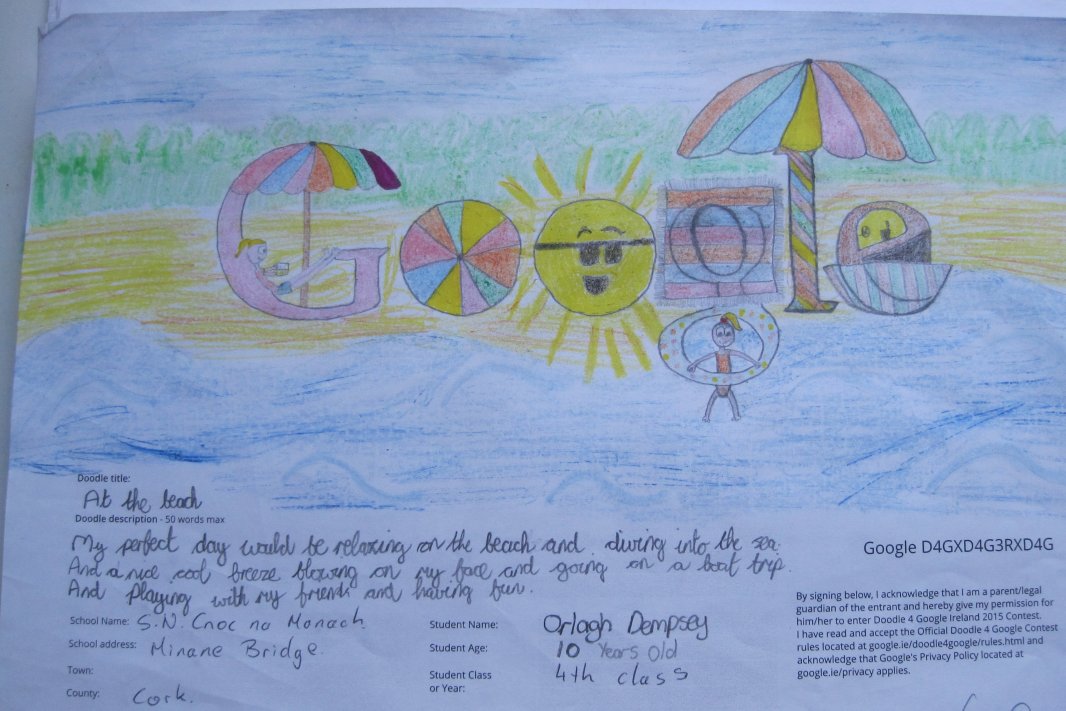 Google
Doodle title:
At the beach
Doodle description - 50 words max
My perfect day would be relaxing on the beach and diving into the sea.
And a nice cool breeze blowing on my face and going on a boat trip.
And playing with my friends and having fun.
Google D4GXD4G3RXD4G
By signing below, I acknowledge that I am a parent/legal
guardian of the entrant and hereby give my permission for
him/her to enter Doodle 4 Google Ireland 2015 Contest.
I have read and accept the Official Doodle 4 Google Contest
rules located at google.ie/doodle4google/rules.html and
acknowledge that Google's Privacy Policy located at
google.ie/privacy applies.
School Name: S.N. Cnoc na Manach
School address: Minane Bridge.
Town:
County: Cork.
Student Name: Orlagh Dempsey
Student Age: 10 Years Old
Student Class 4th class
or Year: